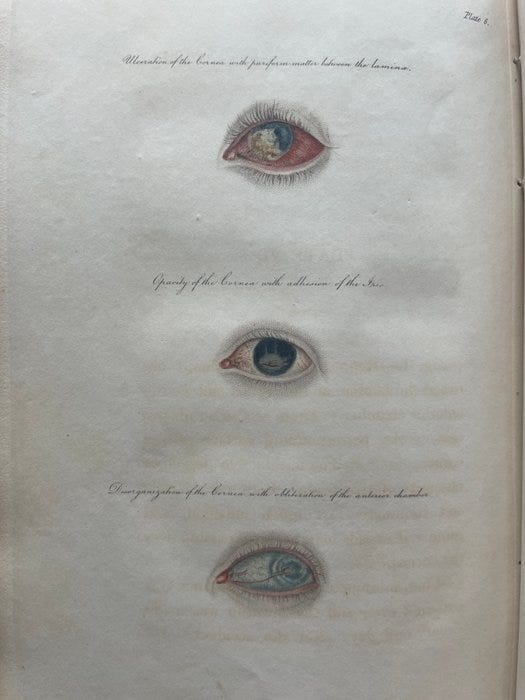 Plate 6.
Ulceration of the Cornea with puriform matter between the laminæ.
Opacity of the Cornea with adhesion of the Iris.
Disorganization of the Cornea with obliteration of the anterior chamber